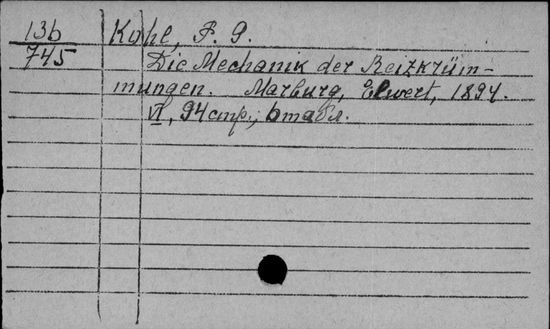 136
745
Kohl, F. G.
Die Mechanik der Reizkrüm-
mungen. Marburg, Elwert, 1894.
VI, 94 стр., 6 табл.